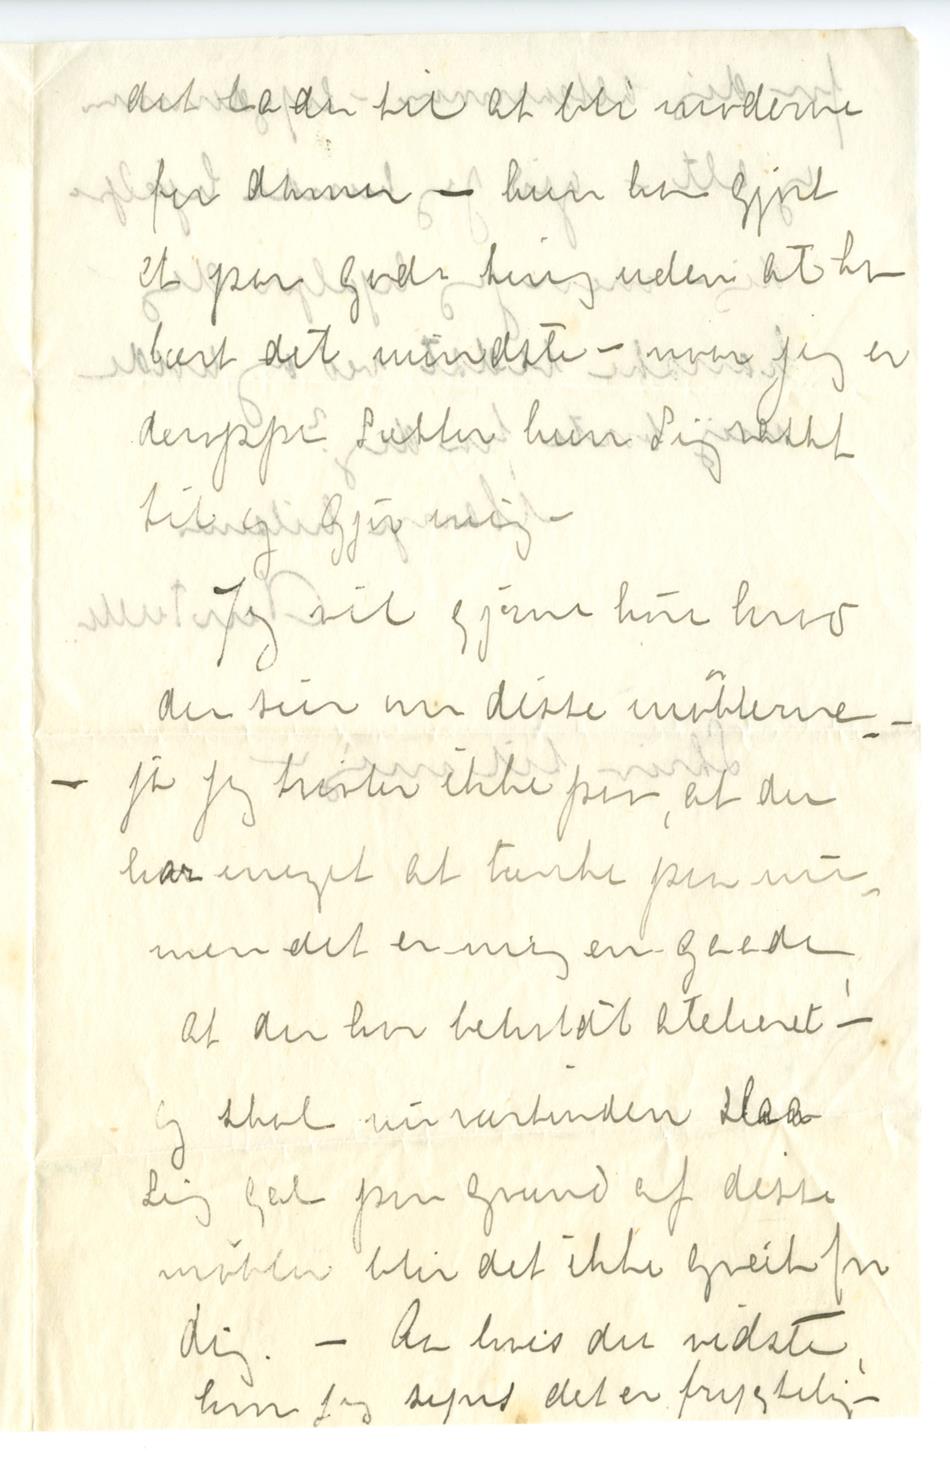 det lader til at bli moderne
for damer – hun har gjort
et par gode ting uden at ha
lært det mindste – naar jeg er
deroppe sætter hun sig rasst
til og gjør mig –
Jeg vil gjerne høre hvad
du sier om disse møblerne –
– ja jeg tviler ikke paa, at du
har meget at tænke paa nu –
men det er mig en gaade,
at du har beholdt atelieret –
og skal nu værtinden slaa
sig gal paa grund af disse
møbler blir det ikke greit for
dig. – Aa hvis du vidste,
hvor jeg synes det er frygtelig –